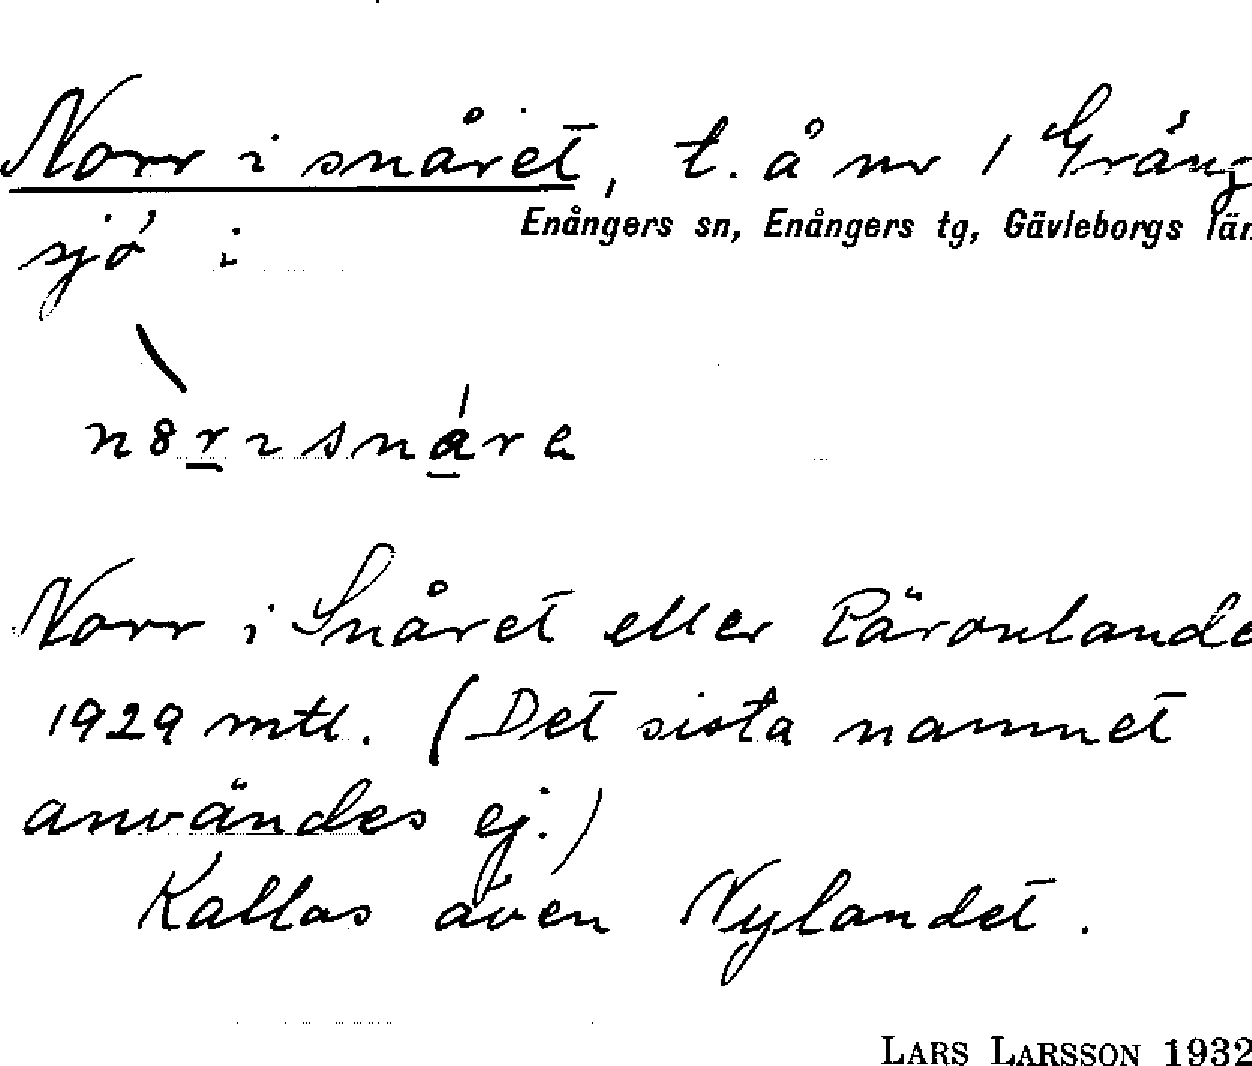 Norr i snåret, t. å nr 1 Gräng
sjö i Enångers sn, Enångers tg, Gävleborgs län
Norr i Snåret eller Päronlande
1929 mtl. (Det sista namnet
användes ej.)
Kallas även Nylandet.
LARS LARSSON 1932